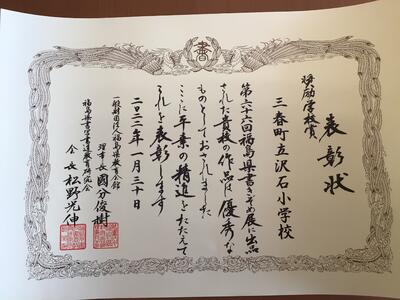 書
表彰状
奨励学校賞
三春町立沢石小学校
第六十六回福島県書きぞめ展に出品
された貴校の作品は優秀な
ものとしておされました
ここに平素の精進をたたえて
これを表彰します
二〇二二年一月三十日
一般財団法人福島県教育会館
理事長 國分俊樹
福島県書写書道教育研究会
会長 松野光伸